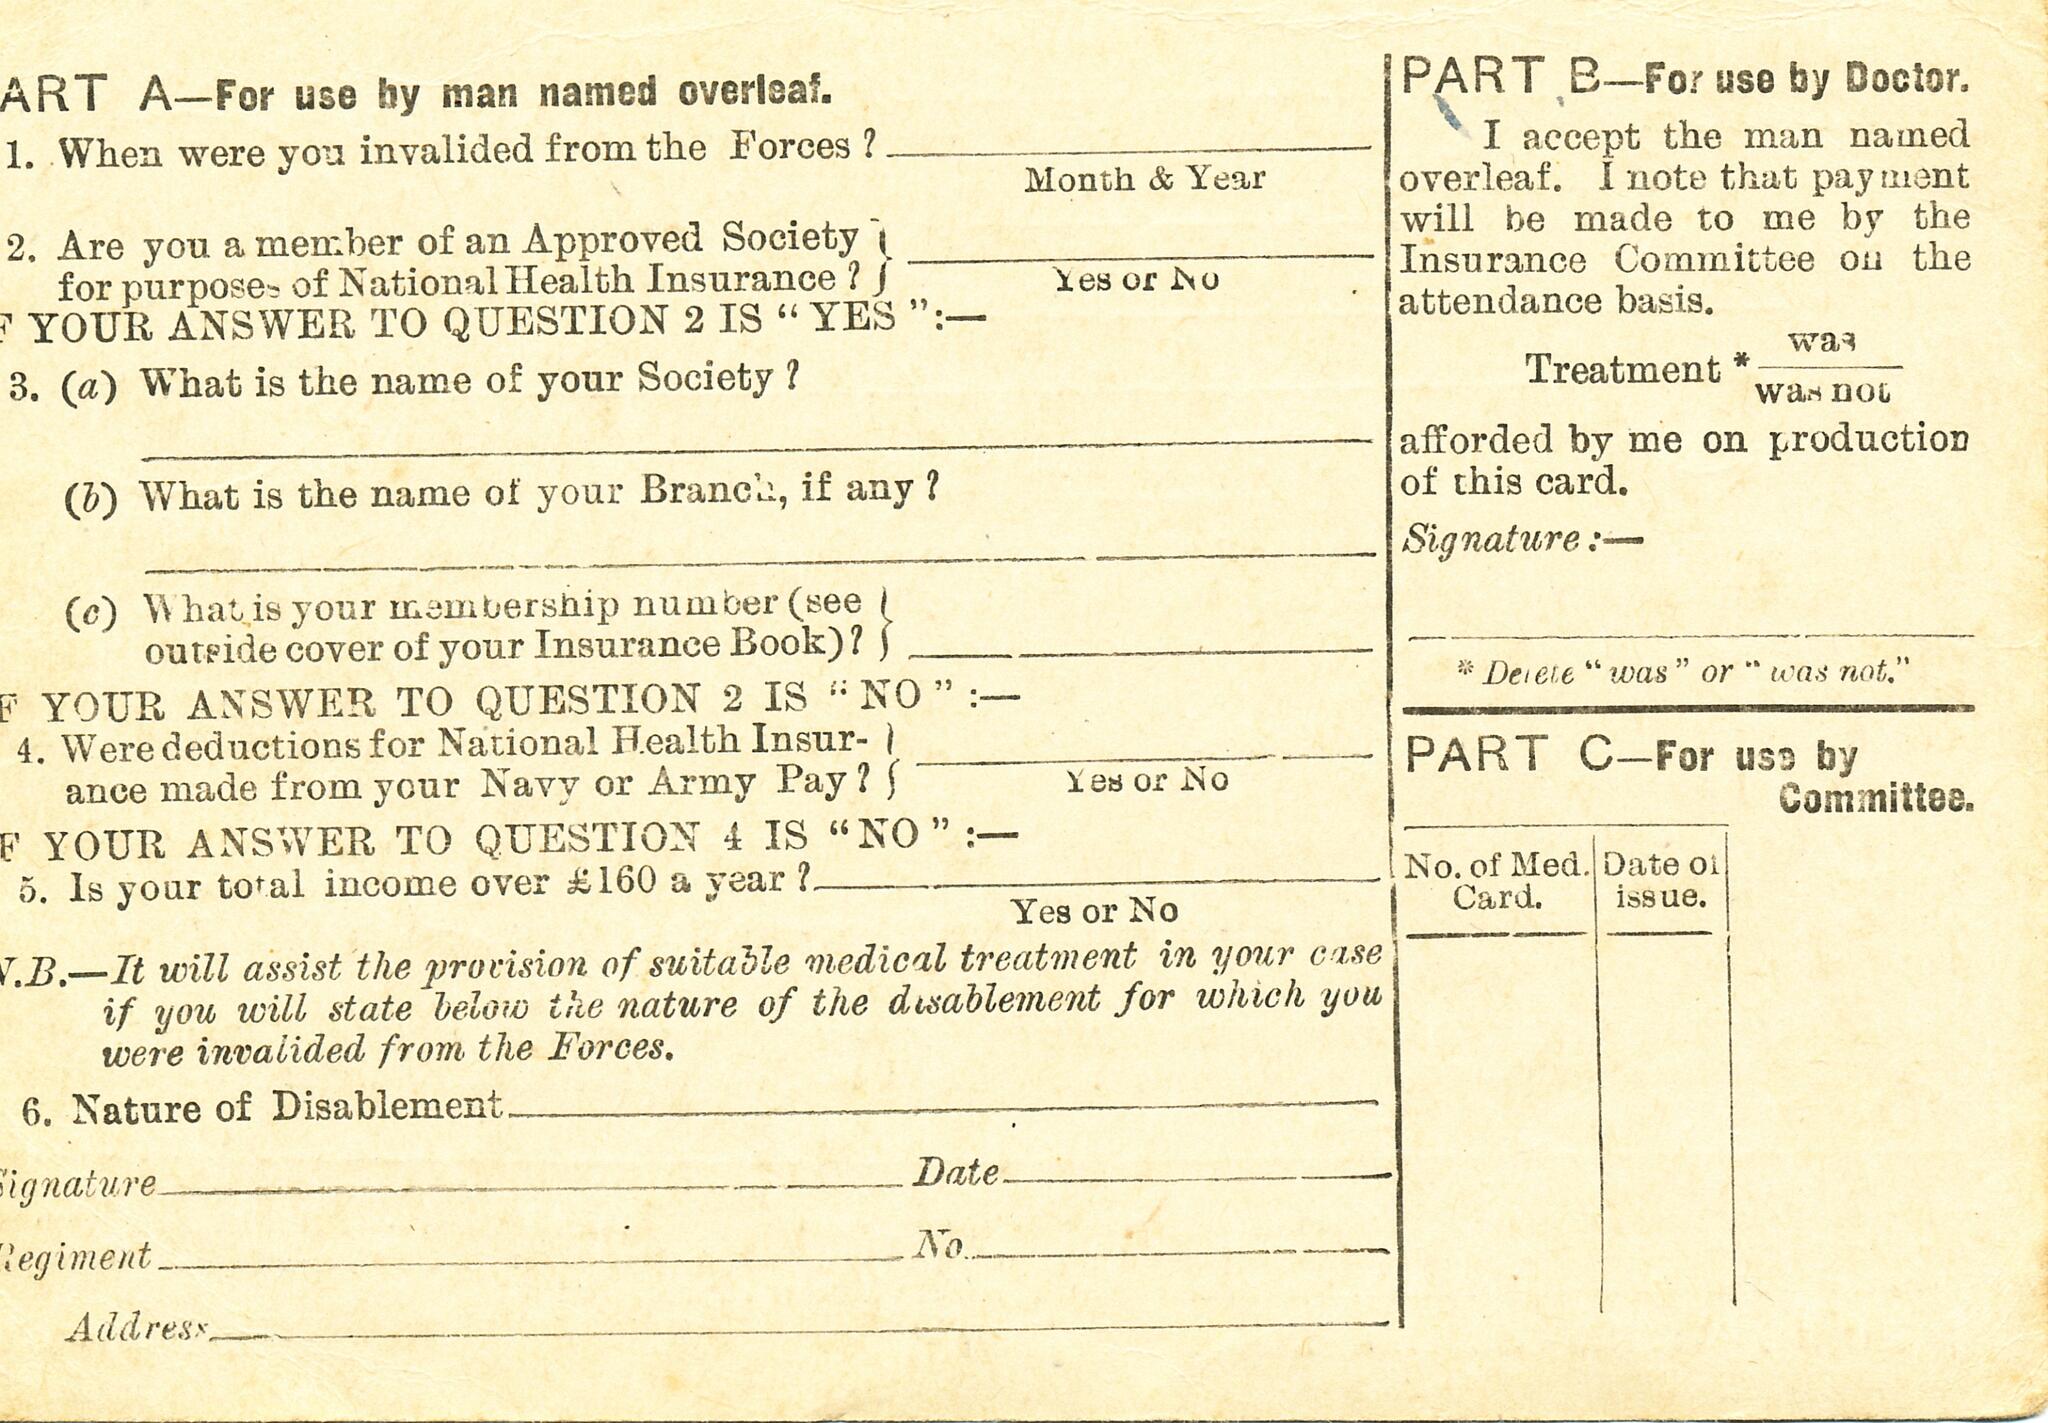 ART A—For use by man named overleaf.
1. When were you invalided from the Forces ?
Month & Year
2. Are you a member of an Approved Society
for purposes of National Health Insurance ?
Yes or No
F YOUR ANSWER TO QUESTION 2 IS “ YES ”:—
3. (a) What is the name of your Society ?
(b) What is the name of your Branch, if any ?
(c) What is your membership number (see
outside cover of your Insurance Book) ?
F YOUR ANSWER TO QUESTION 2 IS “ NO ” :—
4. Were deductions for National Health Insur-
ance made from your Navy or Army Pay ?
Yes or No
F YOUR ANSWER TO QUESTION 4 IS “NO ” :—
5. Is your total income over £160 a year ?
Yes or No
N.B.—It will assist the provision of suitable medical treatment in your case
if you will state below the nature of the disablement for which you
were invalided from the Forces.
6. Nature of Disablement
Signature Date
Regiment No.
Address
PART B—For use by Doctor.
I accept the man named
overleaf. I note that payment
will be made to me by the
Insurance Committee on the
attendance basis.
was
Treatment *
was not
afforded by me on production
of this card.
Signature :—
* Delete “ was ” or “ was not.”
PART C—For use by
Committee.
No. of Med. Date of
Card. issue.